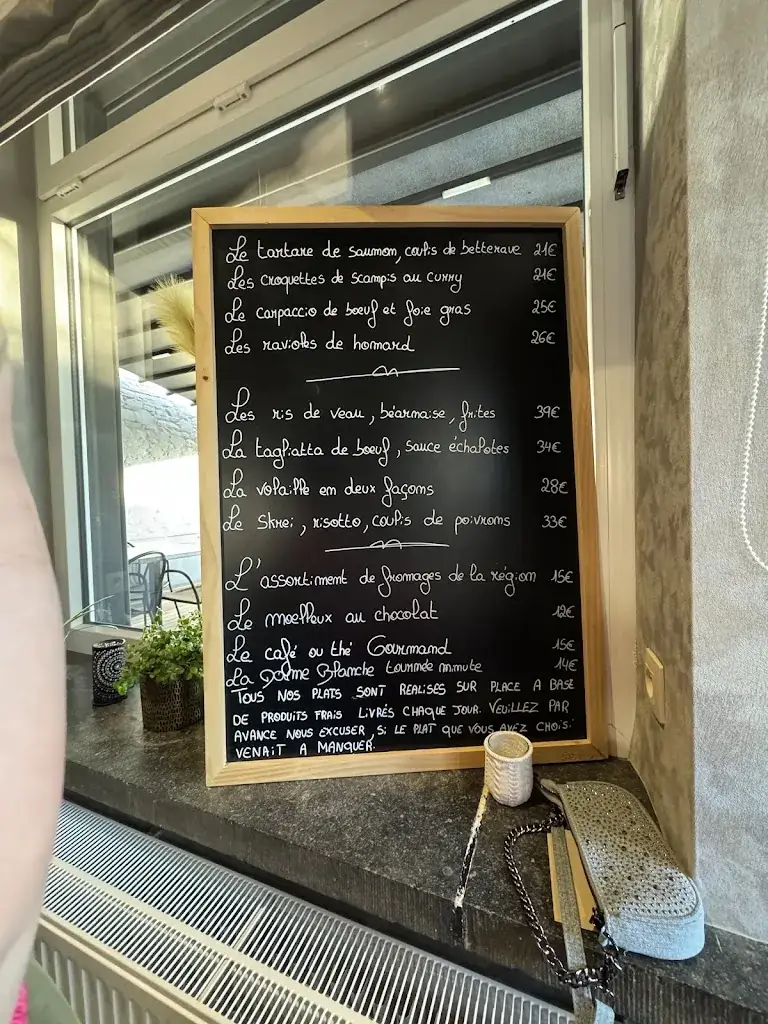 Le tartare de saumon, coulis de betterave 21€
Les croquettes de scampis au curry 21€
Le carpaccio de boeuf et foie gras 25€
Les ravioles de homard 26€
Les ris de veau, béarnaise, frites 39€
La tagliatta de boeuf, sauce échalotes 34€
La volaille en deux façons 28€
Le Skrei, risotto, coulis de poivrons 33€
L'assortiment de fromages de la région 15€
Le moelleux au chocolat 12€
Le café ou thé Gourmand 15€
La Dame Blanche tournée minute 14€
TOUS NOS PLATS SONT REALISES SUR PLACE A BASE
DE PRODUITS FRAIS LIVRÉS CHAQUE JOUR. VEUILLEZ PAR
AVANCE NOUS EXCUSER, SI LE PLAT QUE VOUS AVEZ CHOISI
VENAIT A MANQUER.